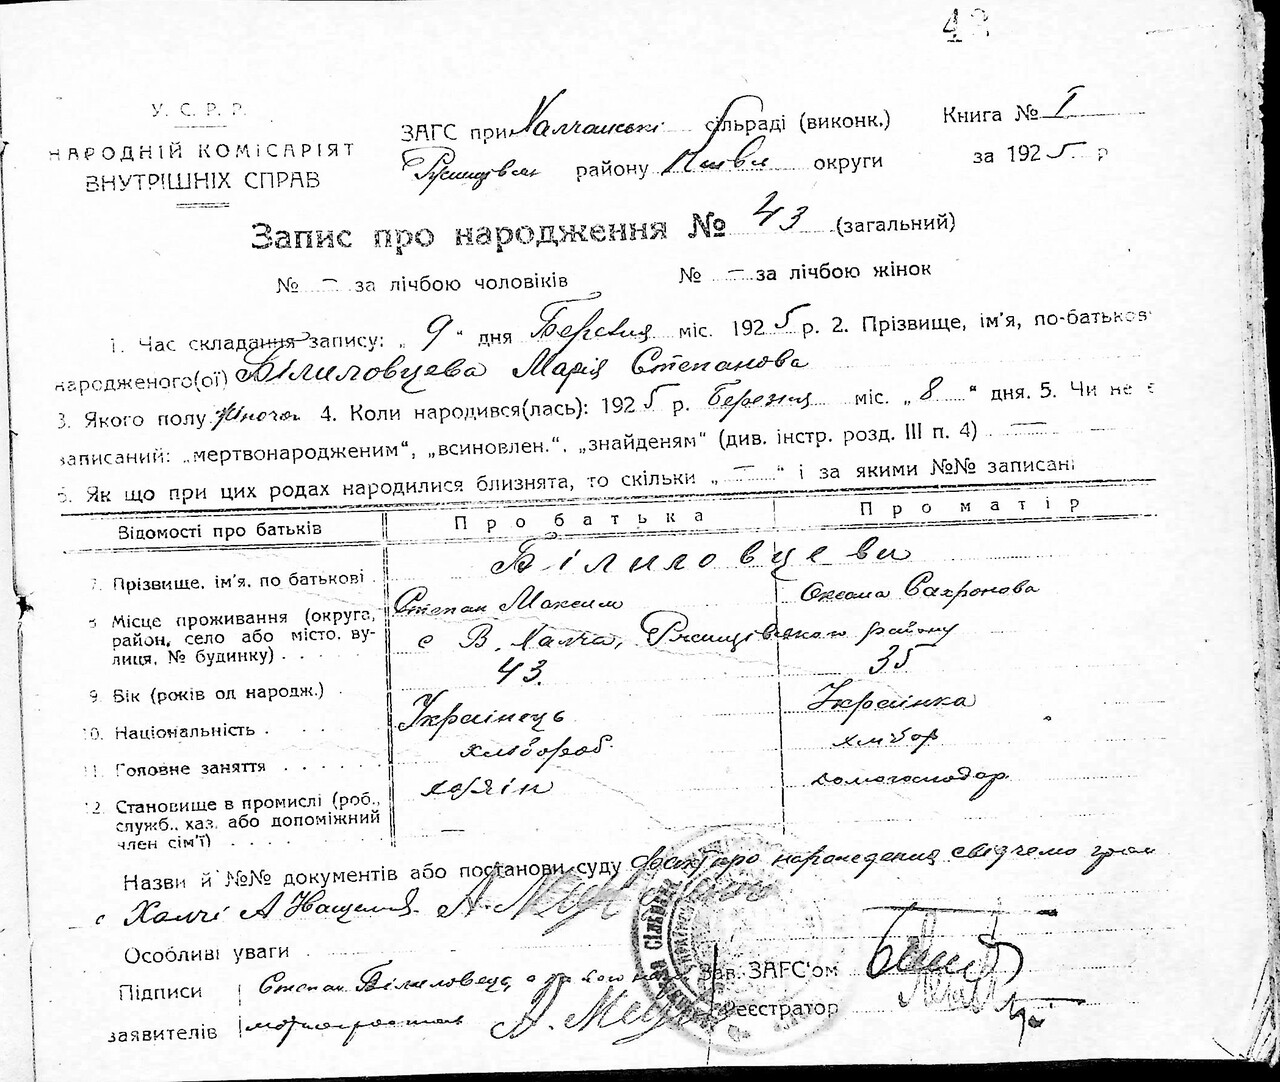 У. С. Р. Р.
НАРОДНІЙ КОМІСАРІЯТ
ВНУТРІШНІХ СПРАВ
ЗАГС при Халчанські сільраді (виконк.)
району округи
Книга № I
за 1925 р
Запис про народження № 43 (загальний)
№ — за лічбою чоловіків № — за лічбою жінок
1. Час складання запису: „ 9 " дня Березня міс. 1925 р. 2. Прізвище, ім'я, по-батьков
народженого(ої) Білиловцева Марія Степанова
3. Якого полу жіночої 4. Коли народився(лась): 1925 р. березня міс. „ 8 " дня. 5. Чи не є
записаний: „мертвонародженим", „всиновлен.", „знайденям" (див. інстр. розд. III п. 4) —
6. Як що при цих родах народилися близнята, то скільки „ — " і за якими №№ записані
Відомості про батьків Про батька Про матір
7. Прізвище, ім'я, по батькові Білиловцеви
Степан Максим Оксана Сахронова
8 Місце проживання (округа, район, село або місто, вулиця, № будинку) с В. Халча, Ржищівського району
9. Вік (років од народж.) 43. 35
10. Національність Українець Українка
11. Головне заняття хлібороб хлібор
12 Становище в промислі (роб., служб., хаз. або допоміжний член сім'ї) хазяін домогосподар
Назви й №№ документів або постанови суду факт про народження свідчемо гром
с Халчі А
Особливі уваги
Підписи заявителів Степан Білиловець
А.
Зав. ЗАГС'ом
Реєстратор